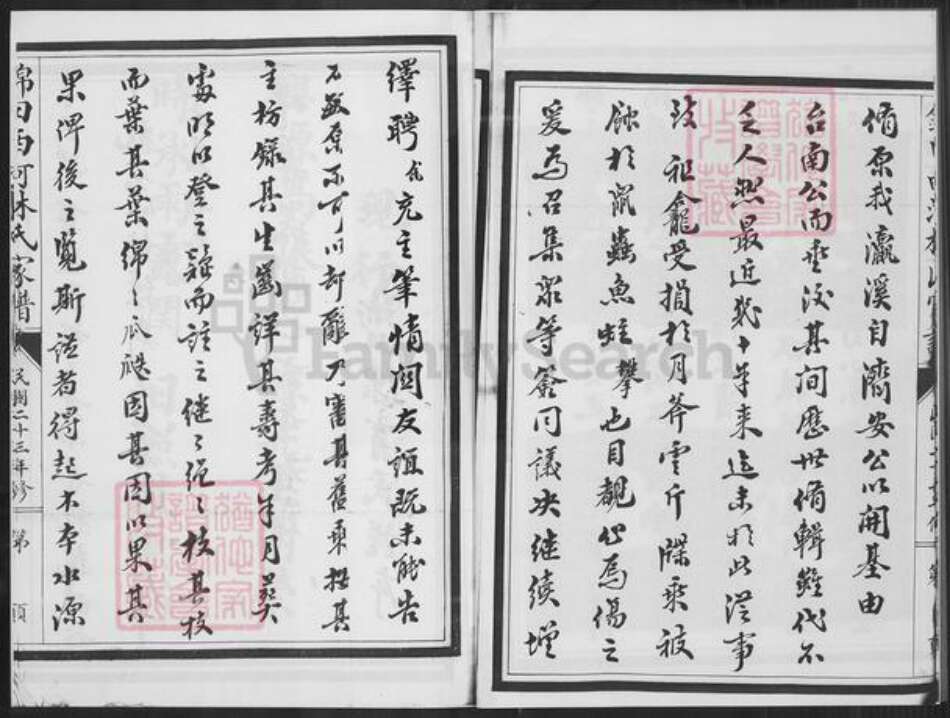 脩原我瀛溪自濟安公以開基由
台南公而垂後其间歷世脩輯雖代不
乏人然最近幾十年來迄未於此從事
致祖龕受損於月斧雲斤牒乘被
蝕於鼠蠹魚蛀攀也目覩心焉傷之
爰為召集眾等簽同議决继续增
繹聘我充主筆情關友誼既未能告
不敏原不可以却辭乃審其舊乘招其
主枋錄其生齒詳其壽考年月葵
處明以登之疑而註之继之绳之枝其枝
而葉其葉绵之瓜瓞因其因以果其
果俾後之覽斯譜者得起木本水源
西河林氏家譜
民國二十三年修
第 頁
FamilySearch